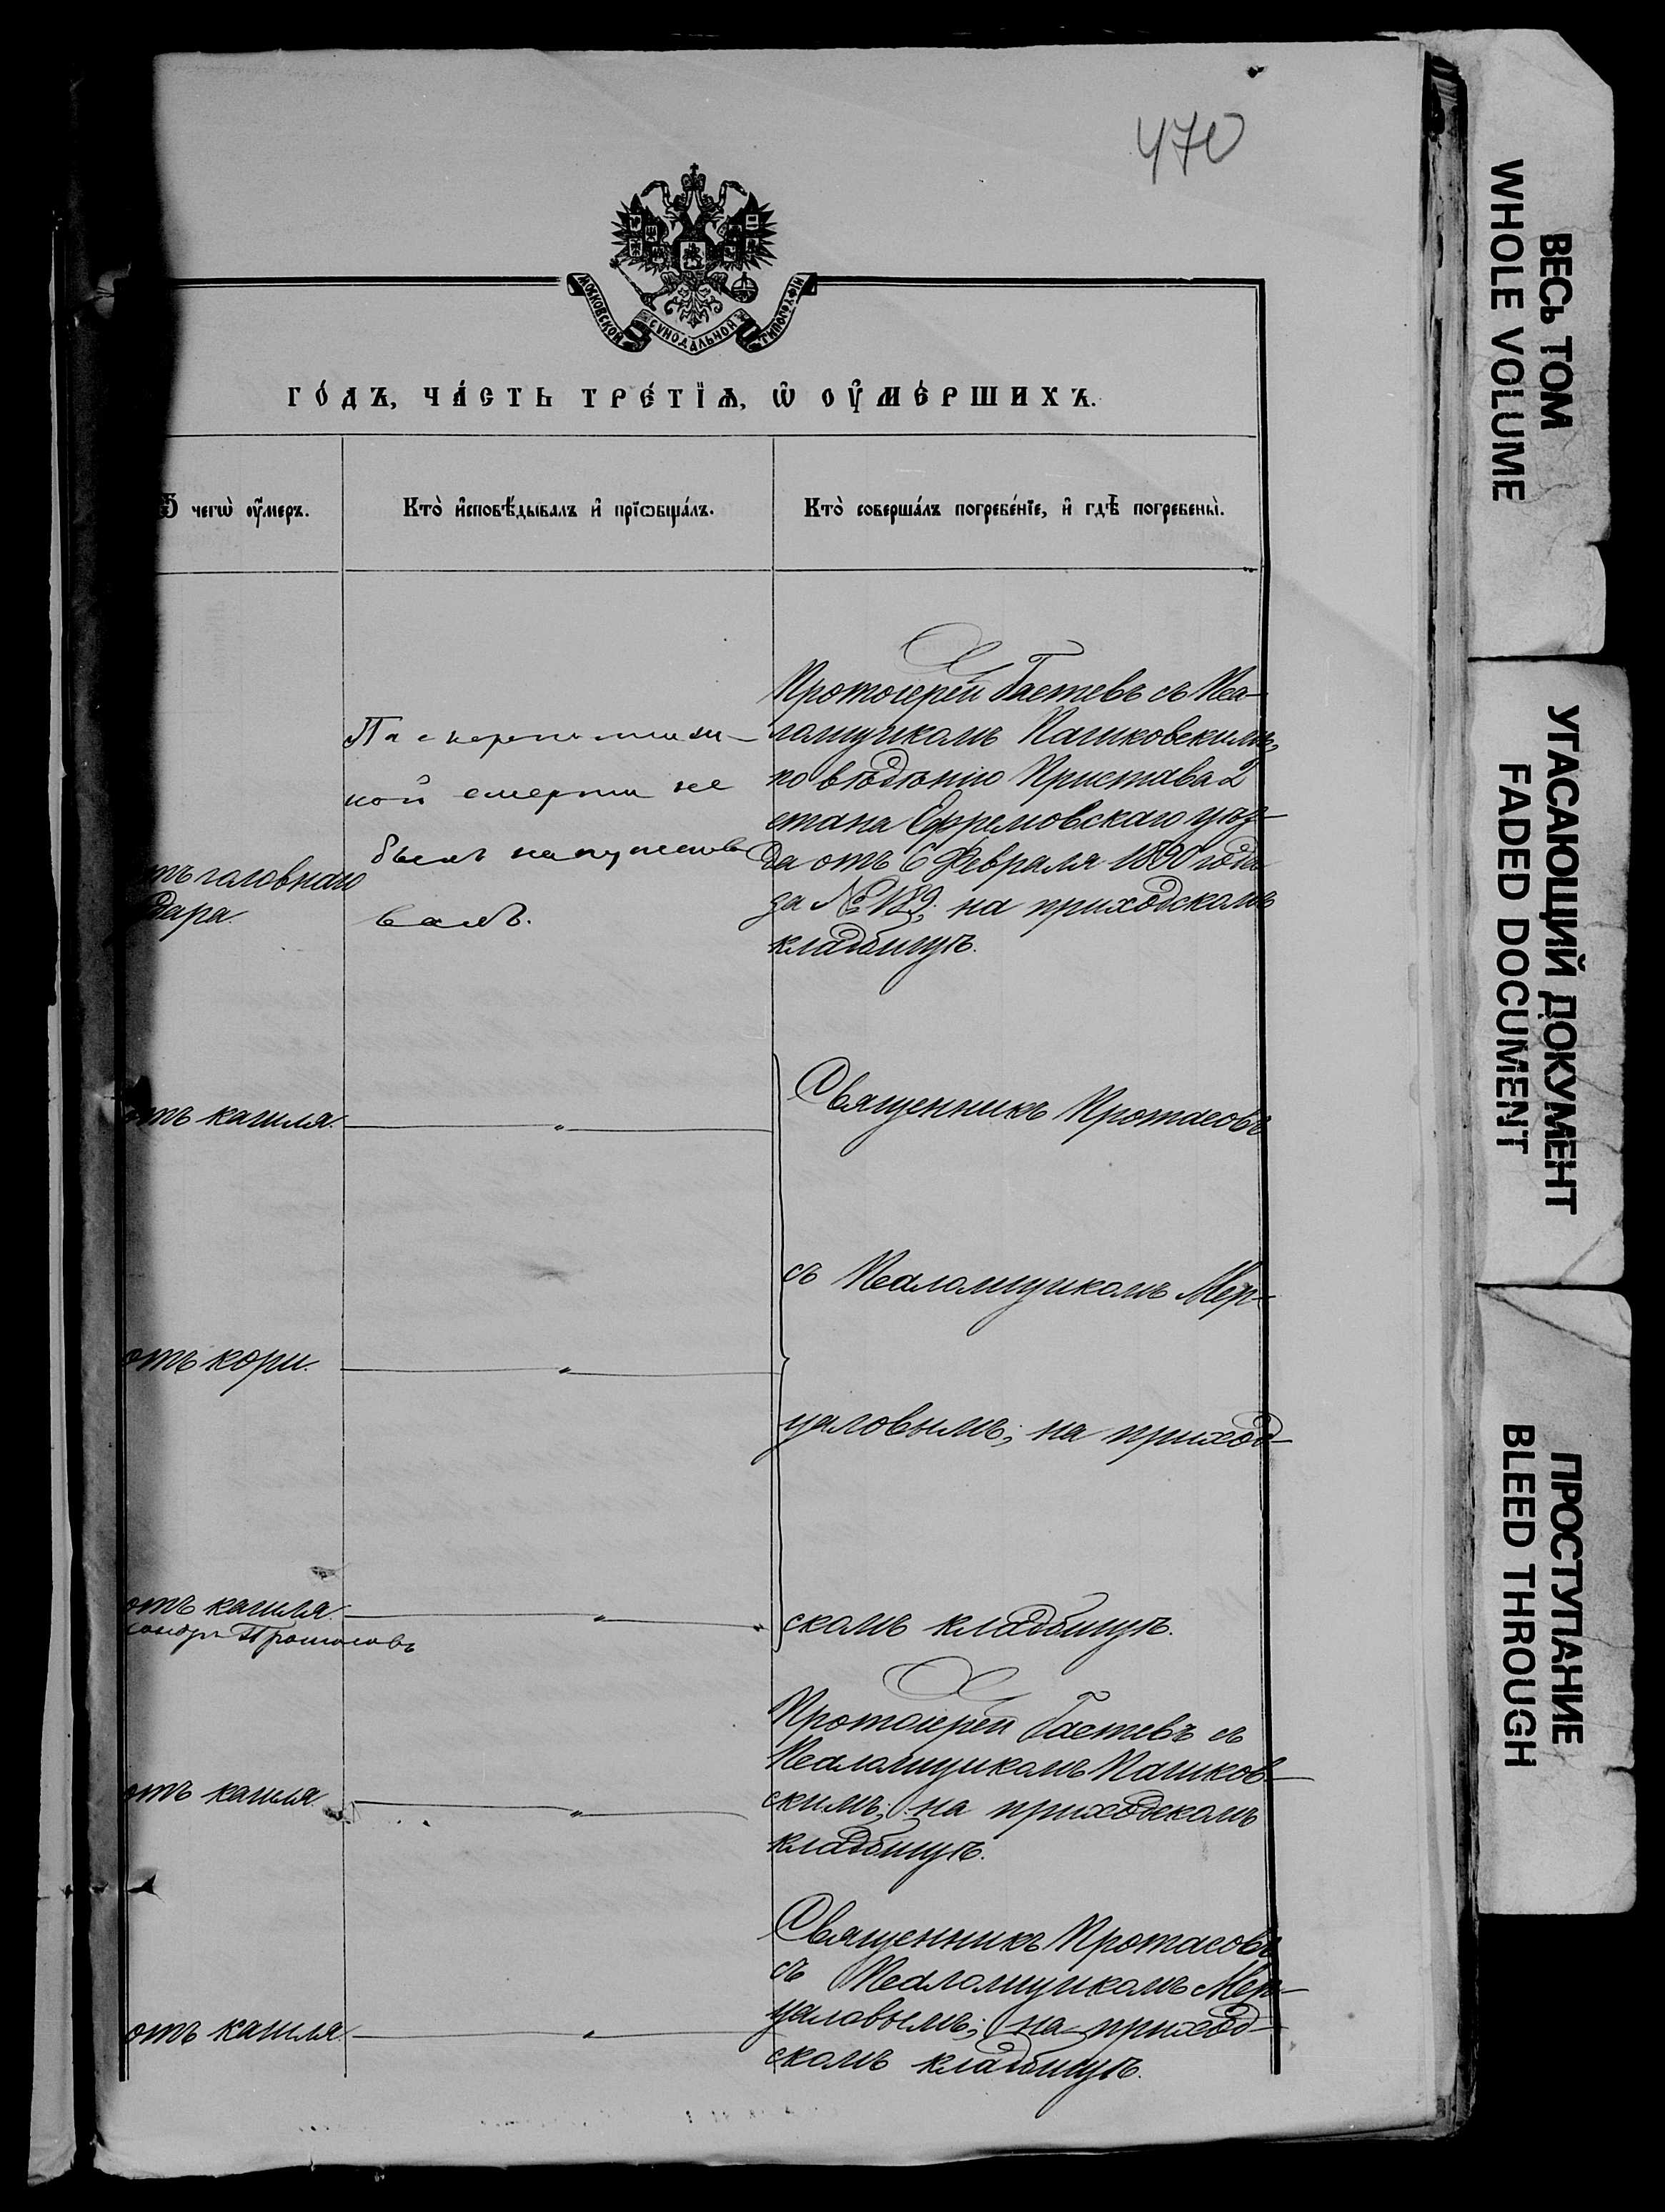 470
МОСКОВСКОЙ СУНОДАЛЬНОЙ ТИПОГРАФIИ
ГО́ДЪ, ЧА́СТЬ ТРЕ́ТЇѦ, Ѡ҆ ОУ҆МЕ́РШИХЪ.
Ѿ чегѡ̀ оу҆́меръ.
Кто̀ и҆сповѣ́дывалъ и҆ прїѡбща́лъ.
Кто̀ соверша́лъ погребе́нїе, и҆ гдѣ̀ погребены̀.
отъ головнаго
дара.
По скоропостиж-
ной смерти не
былъ напутство
ванъ.
Протоіерей Гастевъ съ Пса-
ломщикомъ Пашковскимъ,
по вѣдѣнію Пристава 2
стана Ефремовскаго уѣз-
да отъ 6 Февраля 1890 года
за № 189; на приходскомъ
кладбищѣ.
отъ кашля.
Священникъ Протасовъ
съ Псаломщикомъ Мер-
отъ кори.
цаловымъ; на приход-
отъ кашля.
Протасовъ
скомъ кладбищѣ.
отъ кашля.
Протоіерей Гастевъ съ
Псаломщикомъ Пашков-
скимъ; на приходскомъ
кладбищѣ.
отъ кашля.
Священникъ Протасовъ
съ Псаломщикомъ Мер-
цаловымъ; на приход-
скомъ кладбищѣ.
ВЕСЬ ТОМ
WHOLE VOLUME
УГАСАЮЩИЙ ДОКУМЕНТ
FADED DOCUMENT
ПРОСТУПАНИЕ
BLEED THROUGH